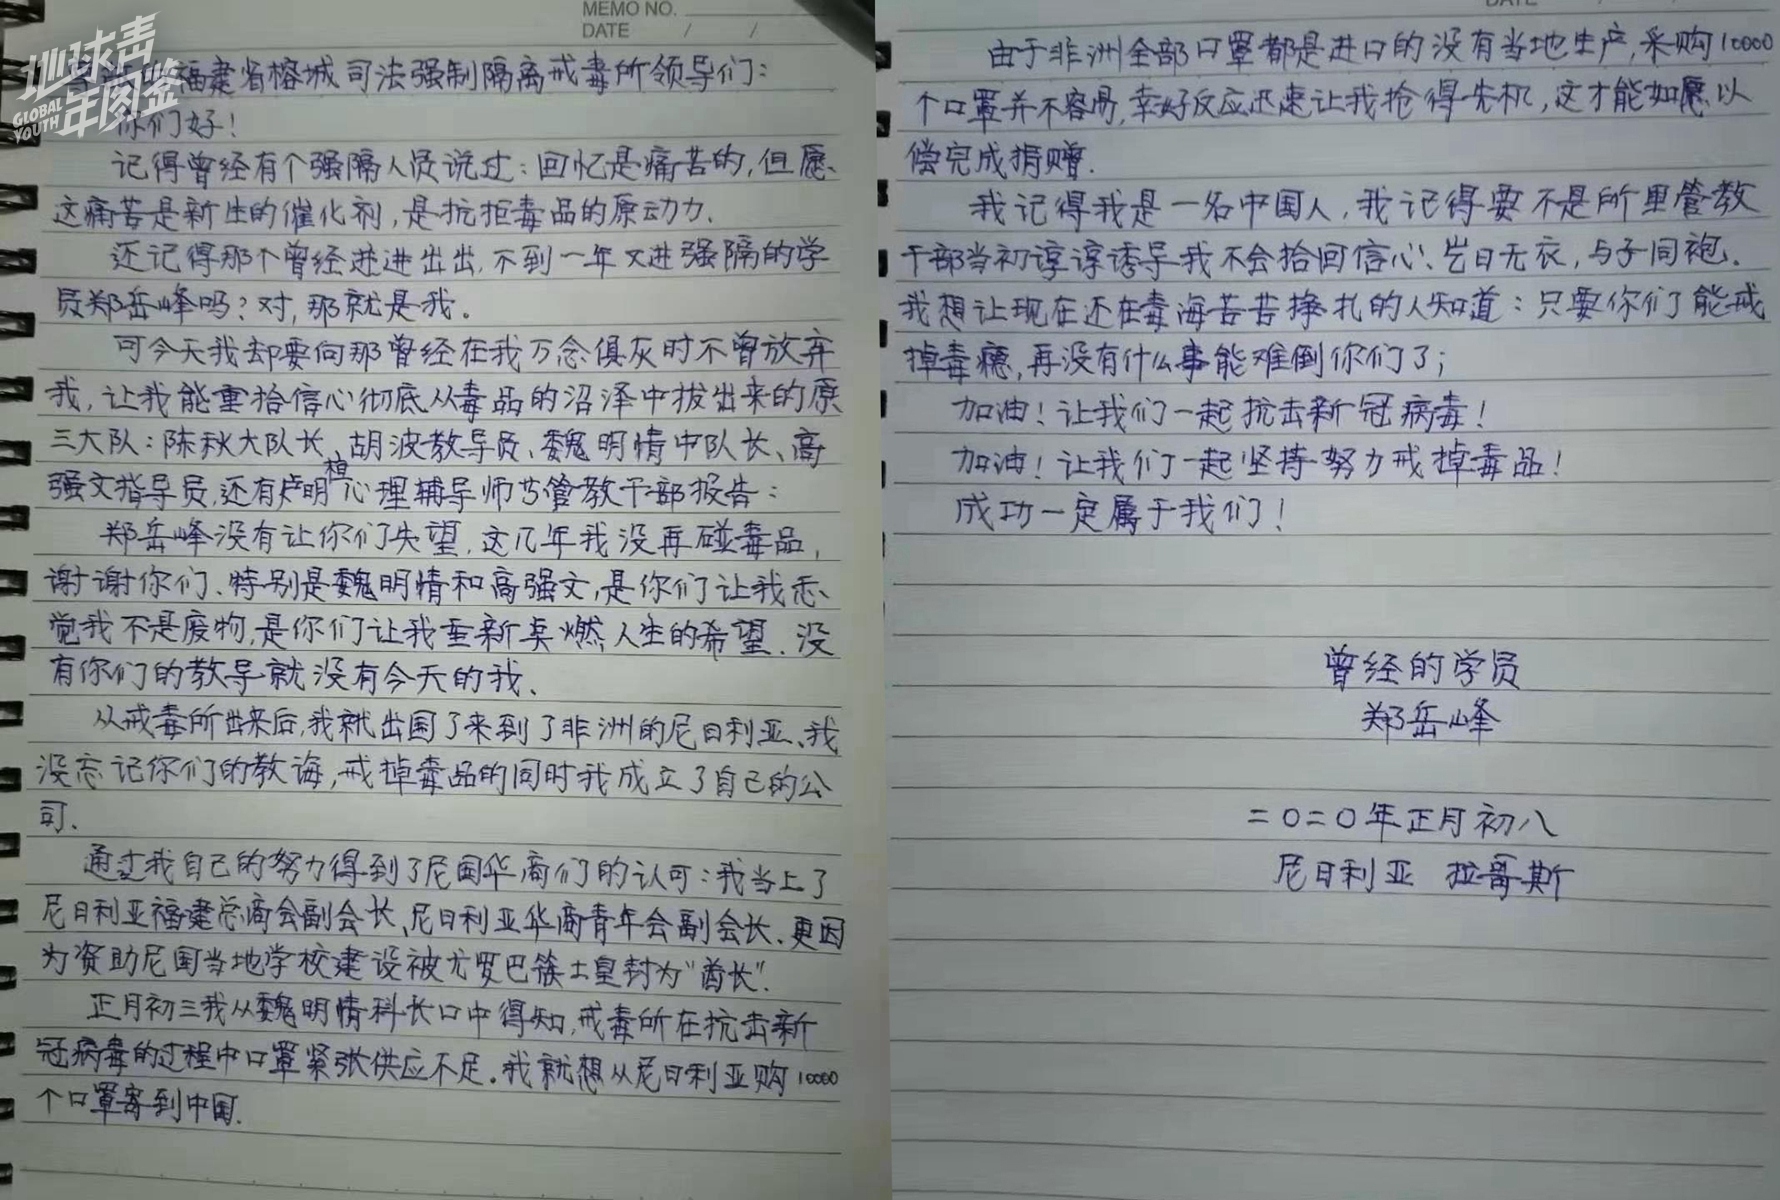 地球青年图鉴
GLOBAL YOUTH
MEMO NO.
DATE / /
福建省榕城司法强制隔离戒毒所领导们：
你们好！
记得曾经有个强隔人员说过：回忆是痛苦的，但愿
这痛苦是新生的催化剂，是抗拒毒品的原动力.
还记得那个曾经进进出出，不到一年又进强隔的学
员郑岳峰吗？对，那就是我。
可今天我却要向那曾经在我万念俱灰时不曾放弃
我，让我能重拾信心彻底从毒品的沼泽中拔出来的原
三大队：陈秋大队长、胡波教导员、魏明情中队长、高
强文指导员，还有卢明桓心理辅导师等管教干部报告：
郑岳峰没有让你们失望，这几年我没再碰毒品，
谢谢你们、特别是魏明情和高强文，是你们让我感
觉我不是废物，是你们让我重新点燃人生的希望、没
有你们的教导就没有今天的我、
从戒毒所出来后，我就出国了来到了非洲的尼日利亚、我
没忘记你们的教诲，戒掉毒品的同时我成立了自己的公
司.
通过我自己的努力得到了尼国华商们的认可：我当上了
尼日利亚福建总商会副会长、尼日利亚华商青年会副会长、更因
为资助尼国当地学校建设被尤罗巴族土皇封为“酋长”.
正月初三我从魏明情科长口中得知，戒毒所在抗击新
冠病毒的过程中口罩紧张供应不足。我就想从尼日利亚购10000
个口罩寄到中国.
DATE
由于非洲全部口罩都是进口的没有当地生产，采购10000
个口罩并不容易，幸好反应迅速让我抢得先机，这才能如愿以
偿完成捐赠.
我记得我是一名中国人，我记得要不是所里管教
干部当初谆谆诱导我不会拾回信心、岂曰无衣，与子同袍.
我想让现在还在毒海苦苦挣扎的人知道：只要你们能戒
掉毒瘾，再没有什么事能难倒你们了；
加油！让我们一起抗击新冠病毒！
加油！让我们一起坚持努力戒掉毒品！
成功一定属于我们！
曾经的学员
郑岳峰
二〇二〇年正月初八
尼日利亚 拉哥斯